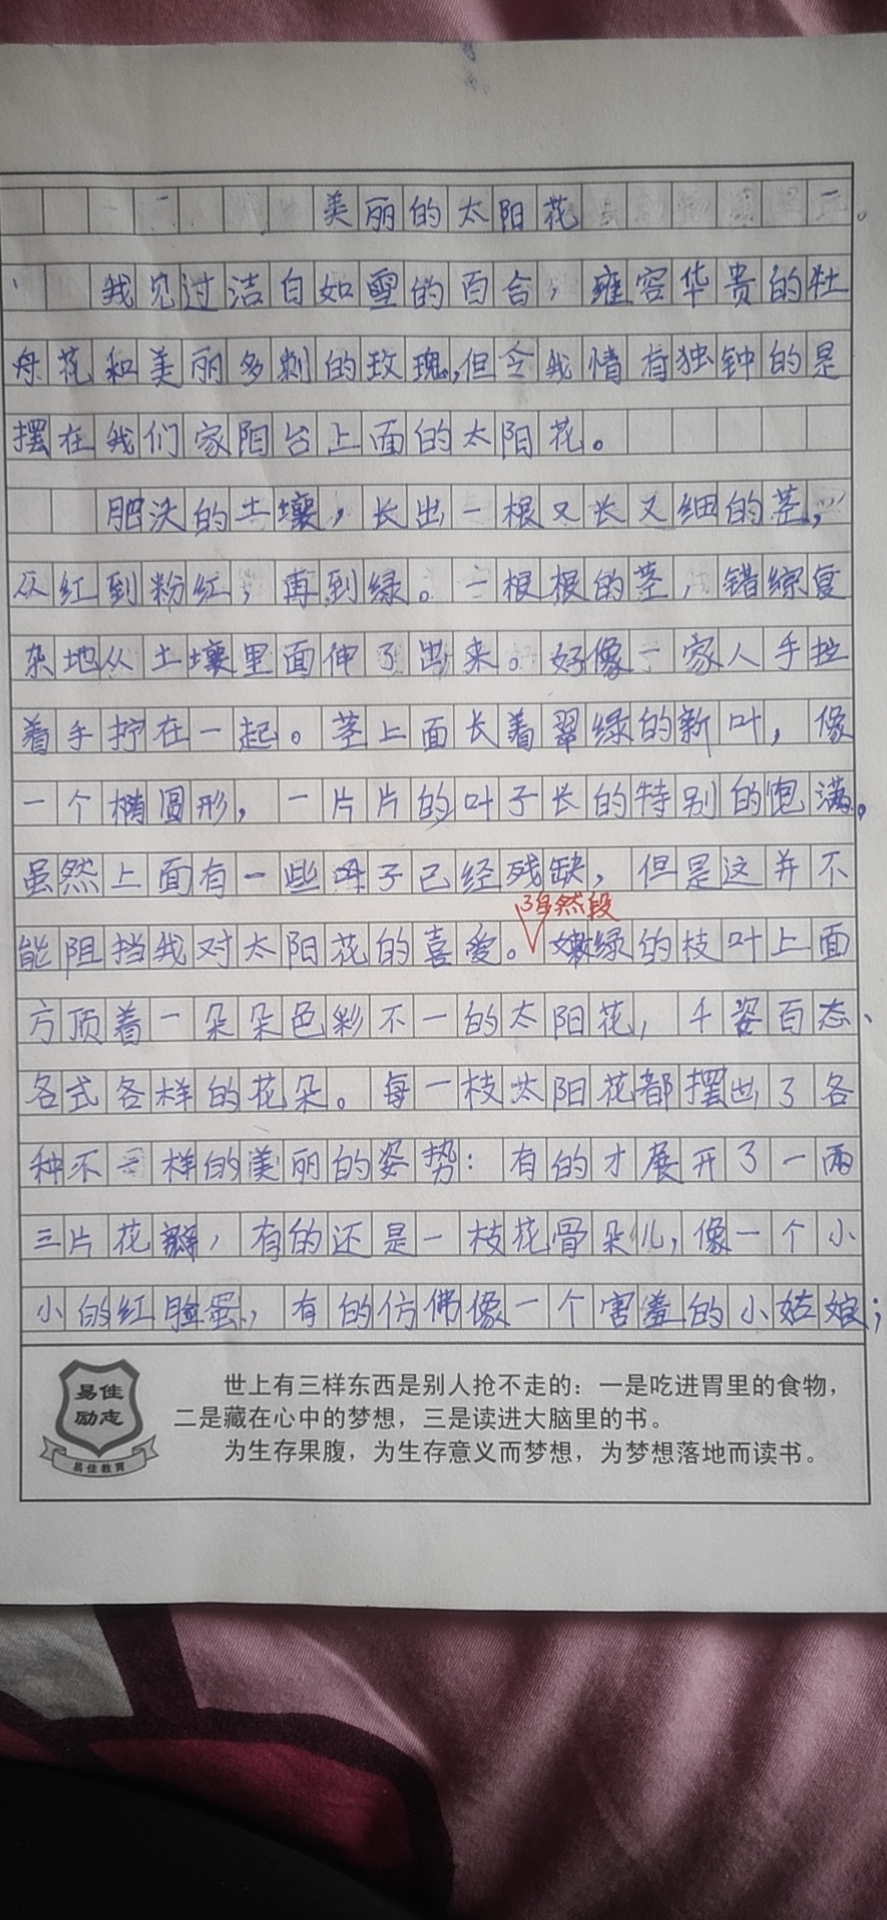 美丽的太阳花
我见过洁白如雪的百合，雍容华贵的牡
丹花和美丽多刺的玫瑰，但令我情有独钟的是
摆在我们家阳台上面的太阳花。
肥沃的土壤，长出一根又长又细的茎，
从红到粉红，再到绿。一根根的茎，错综复
杂地从土壤里面伸了出来。好像一家人手拉
着手拧在一起。茎上面长着翠绿的新叶，像
一个椭圆形，一片片的叶子长的特别的饱满。
虽然上面有一些叶子已经残缺，但是这并不
3自然段
能阻挡我对太阳花的喜爱。嫩绿的枝叶上面
方顶着一朵朵色彩不一的太阳花，千姿百态、
各式各样的花朵。每一枝太阳花都摆出了各
种不一样的美丽的姿势：有的才展开了一两
三片花瓣，有的还是一枝花骨朵儿，像一个小
小的红脸蛋，有的仿佛像一个害羞的小姑娘；
易佳
励志
易佳教育
世上有三样东西是别人抢不走的：一是吃进胃里的食物，
二是藏在心中的梦想，三是读进大脑里的书。
为生存果腹，为生存意义而梦想，为梦想落地而读书。